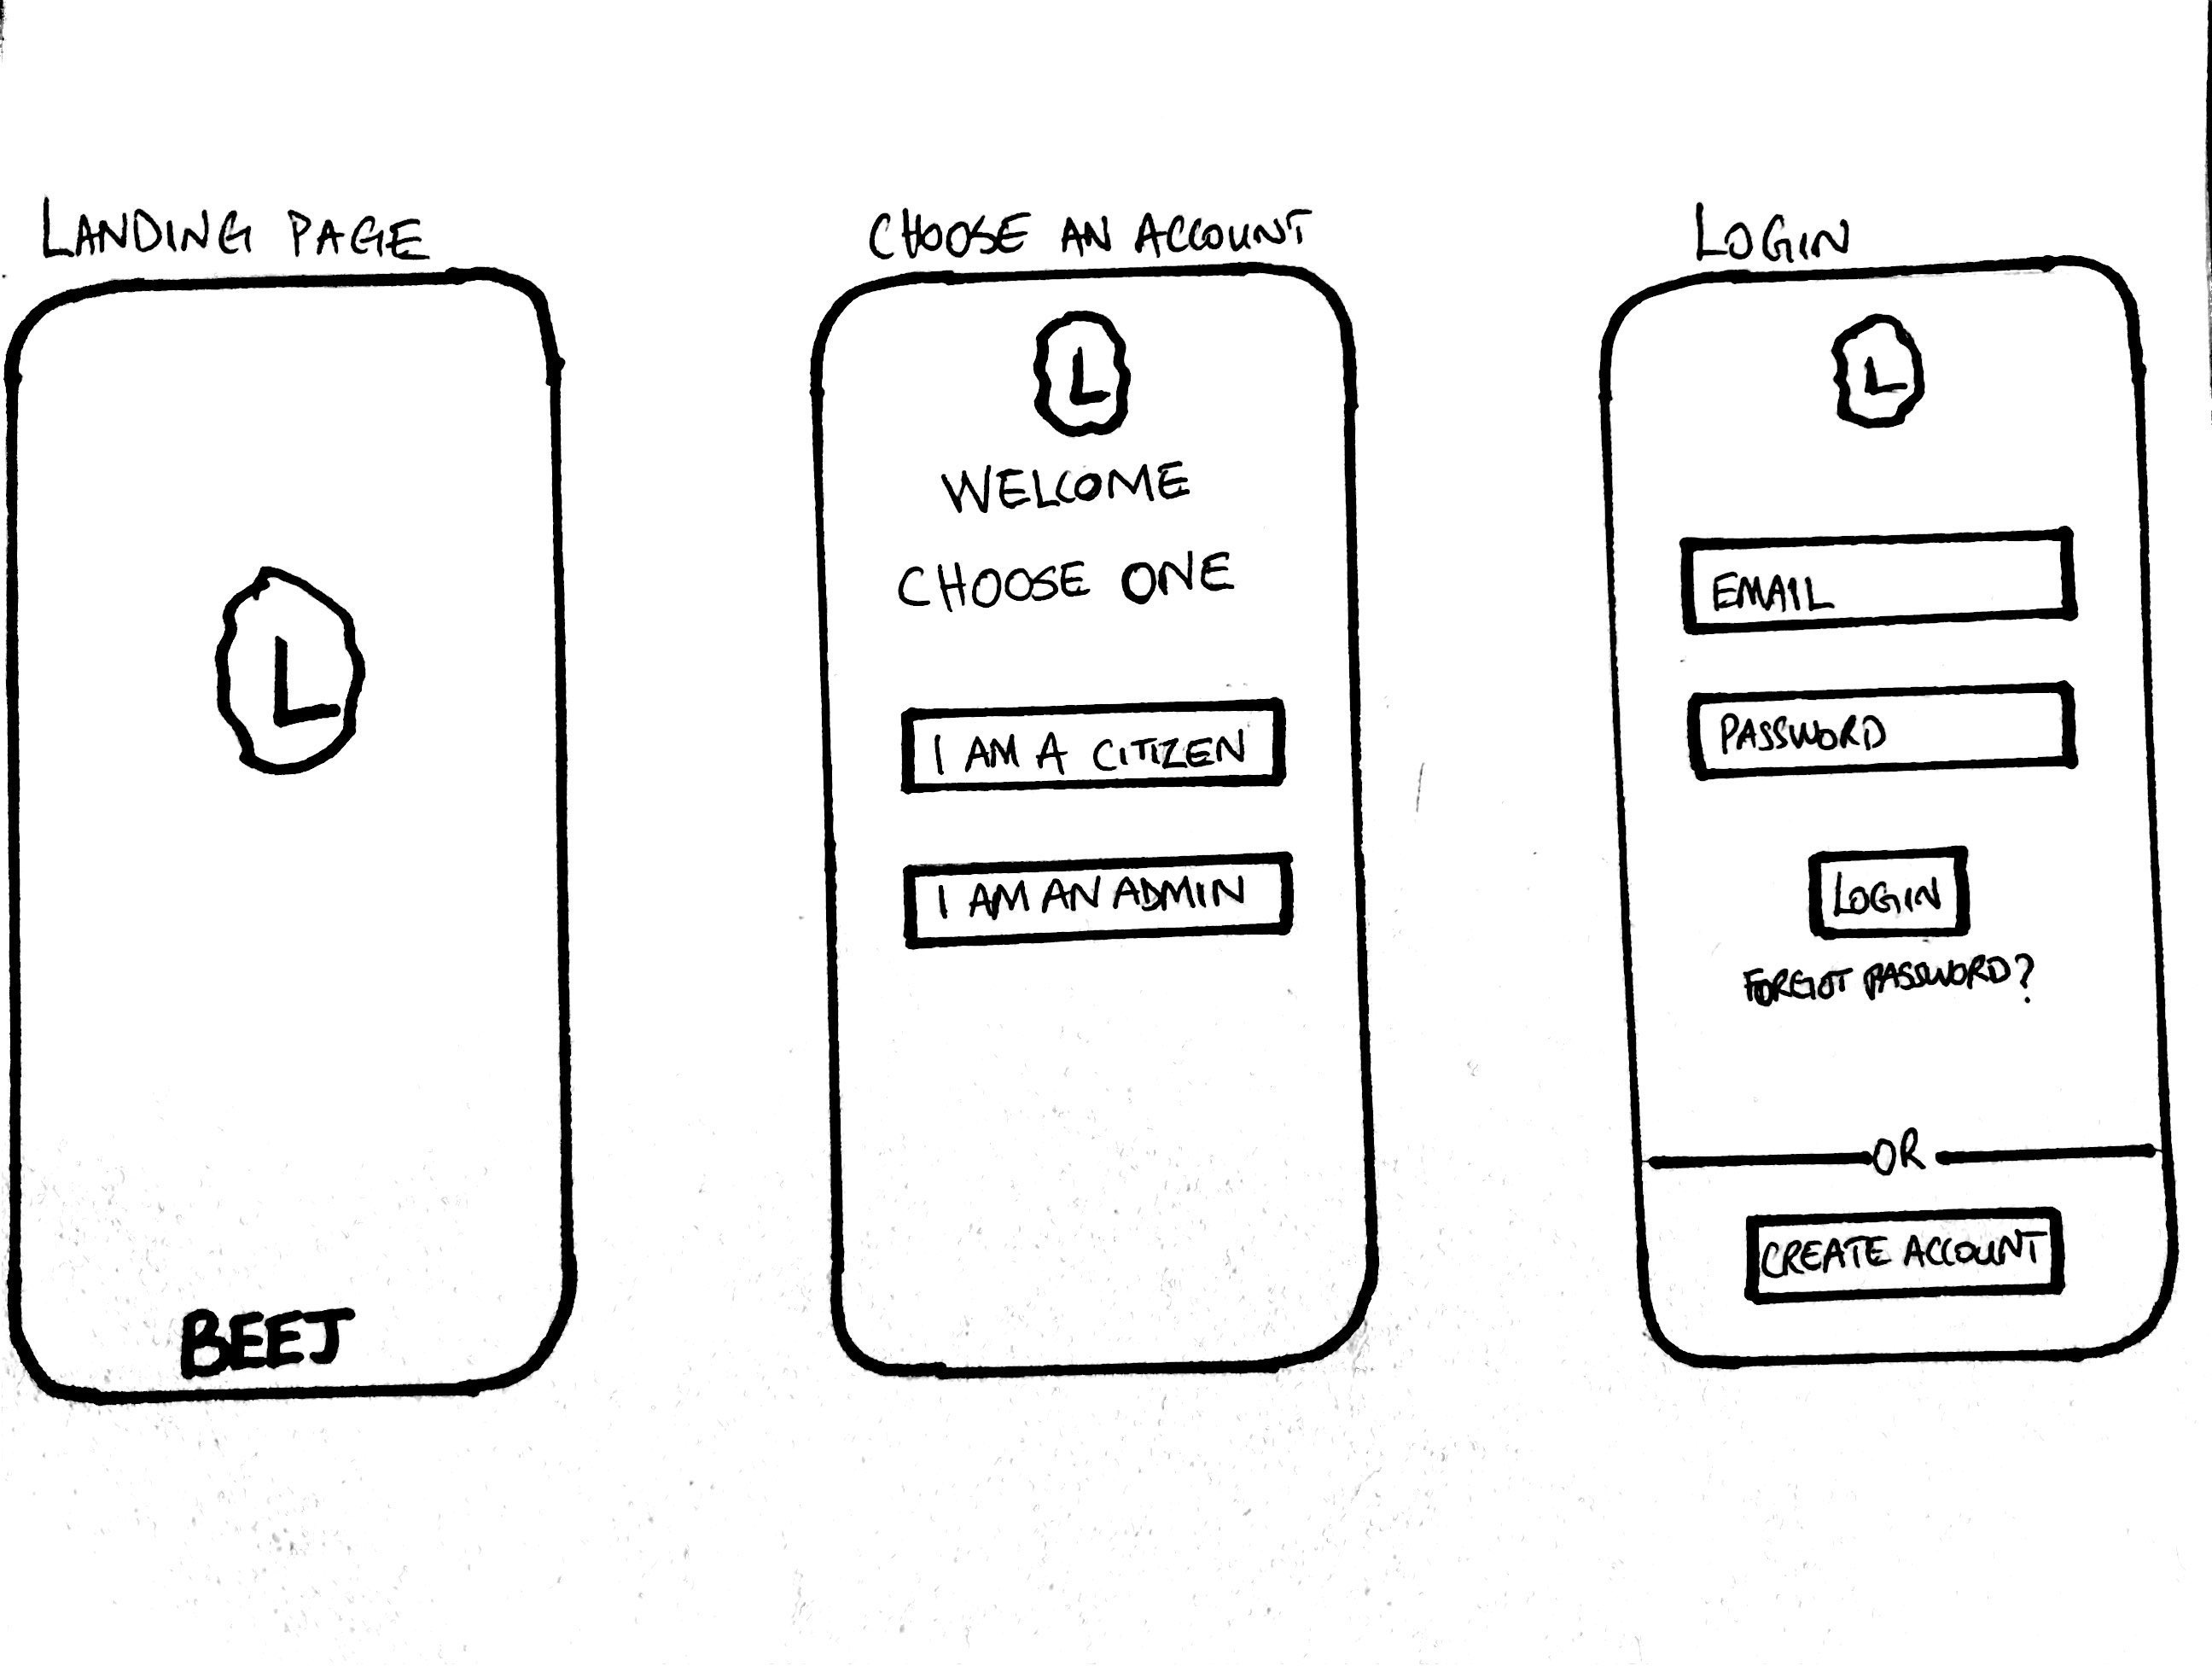 LANDING PAGE
L
BEEJ
CHOOSE AN ACCOUNT
L
WELCOME
CHOOSE ONE
I AM A CITIZEN
I AM AN ADMIN
LOGIN
L
EMAIL
PASSWORD
LOGIN
FORGOT PASSWORD?
OR
CREATE ACCOUNT